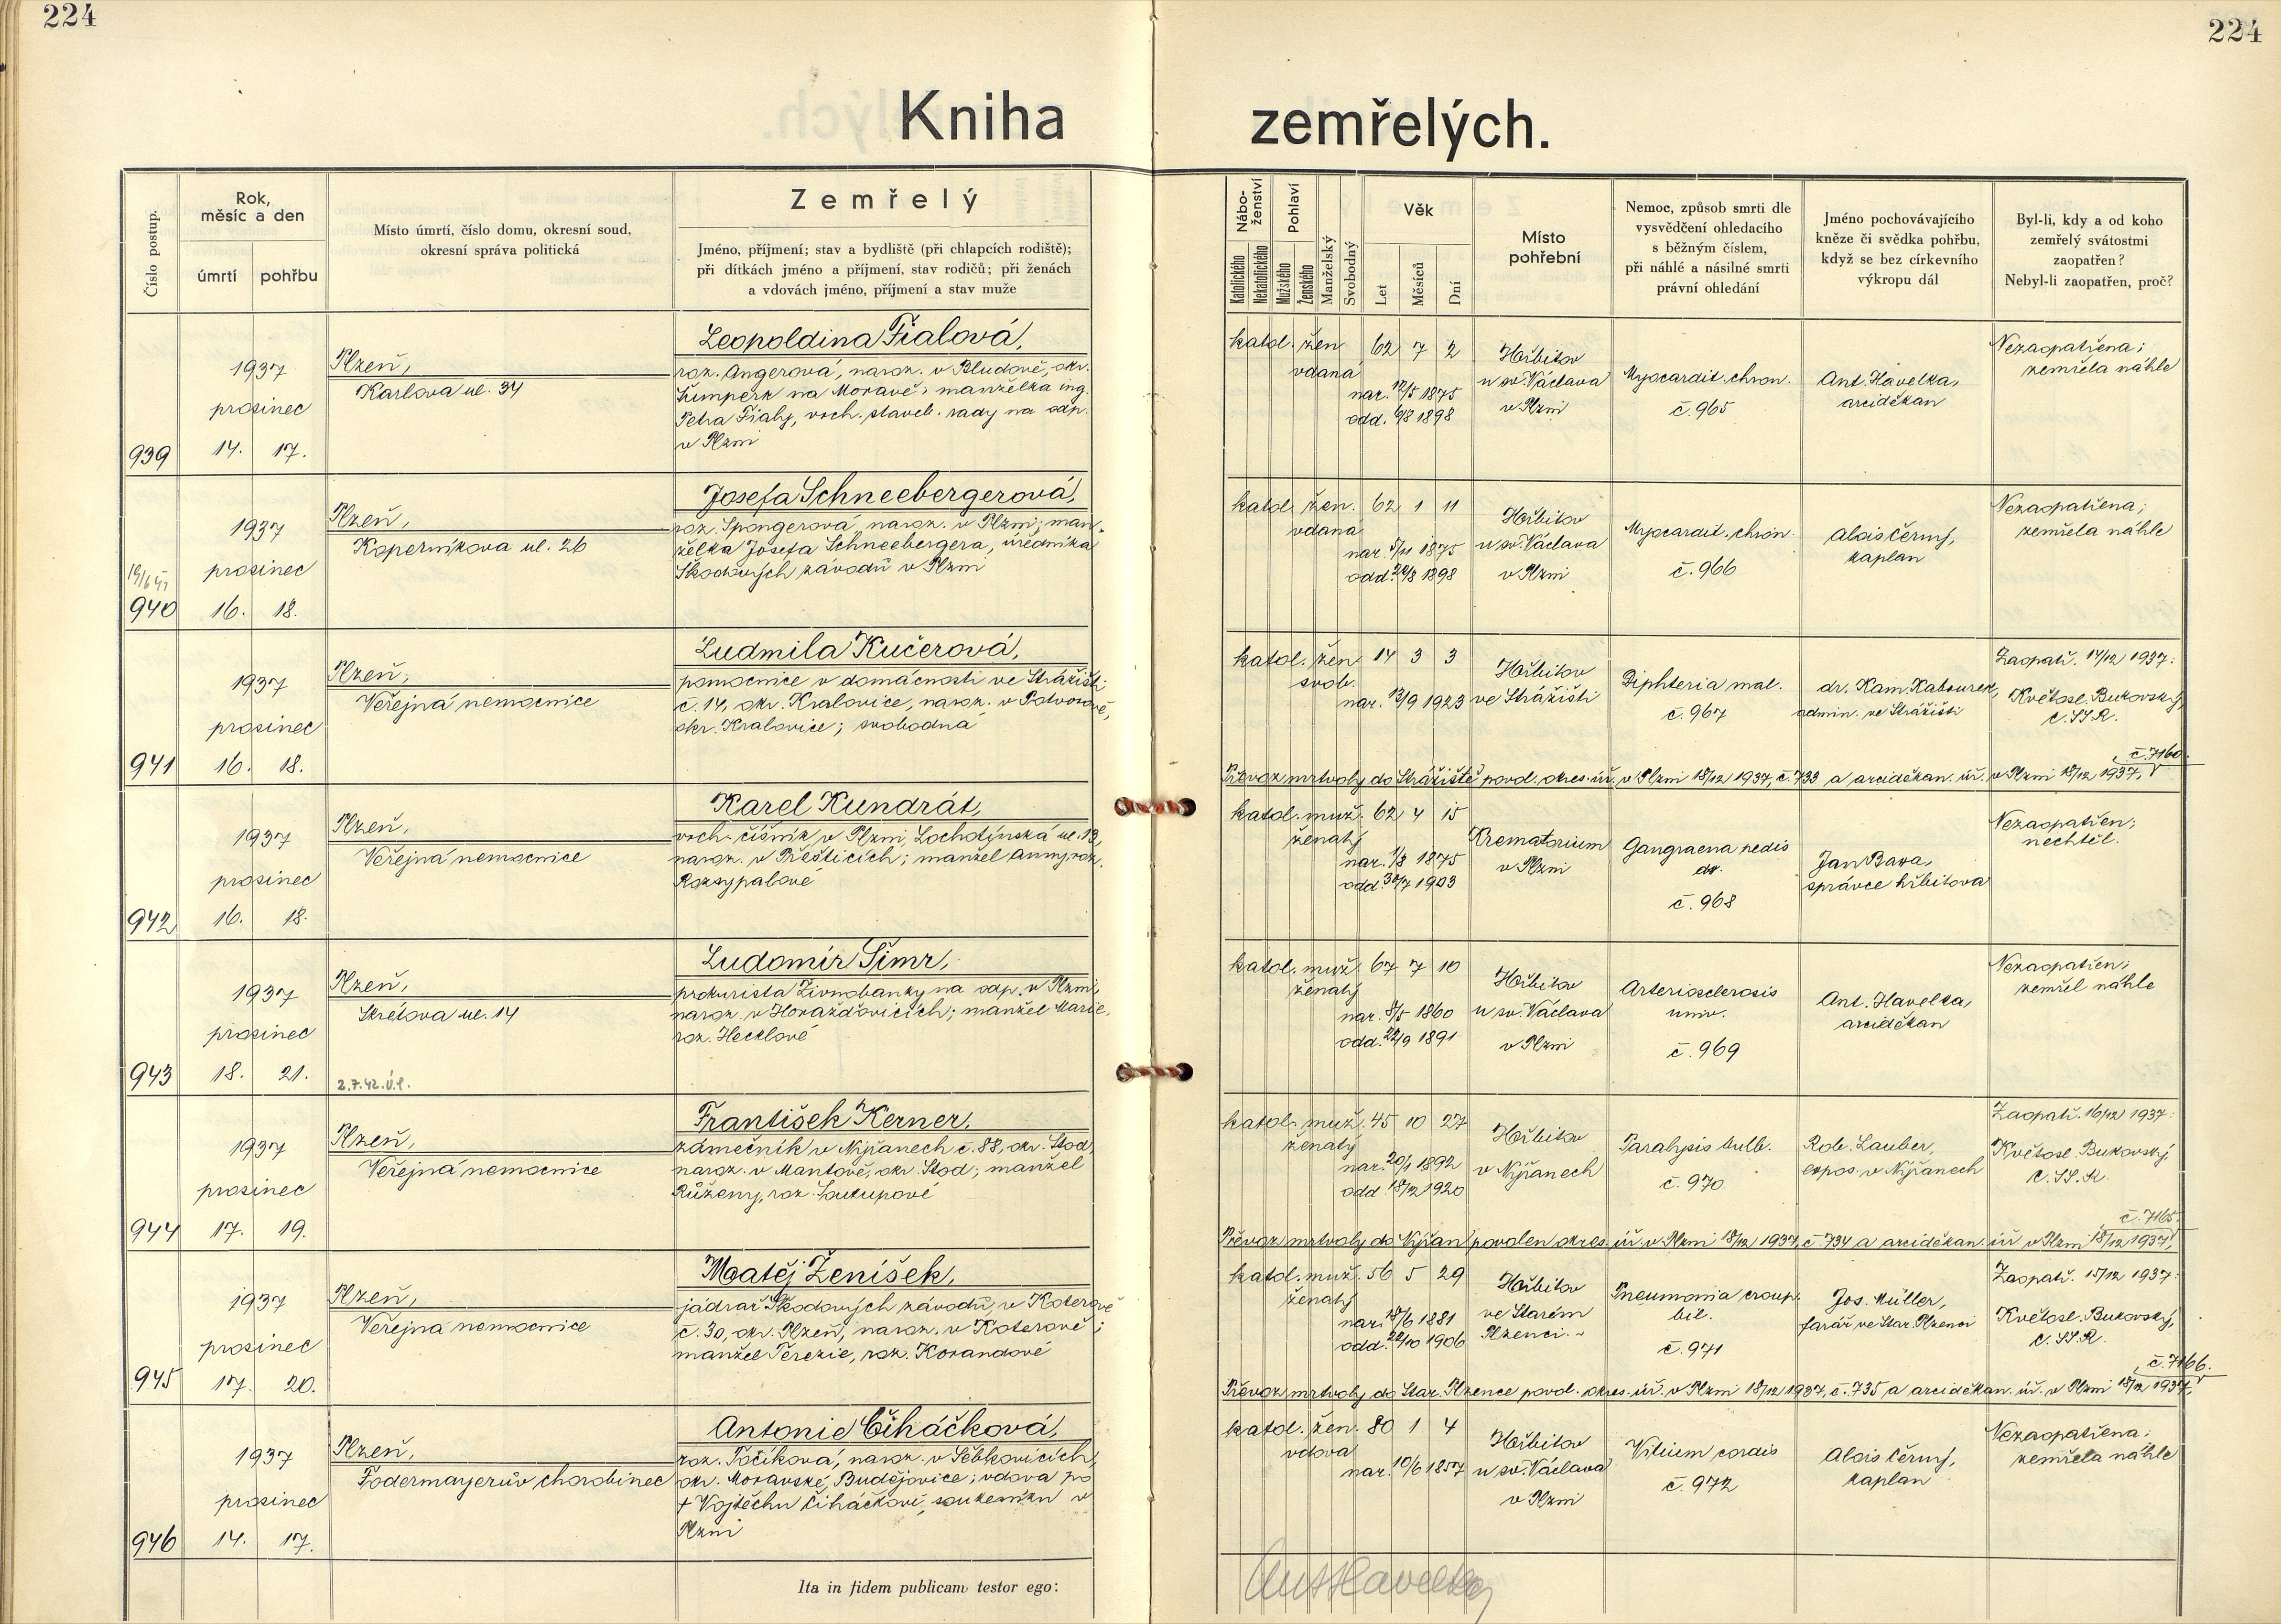 224
224
Kniha zemřelých.
Číslo postup.
Rok, měsíc a den
úmrtí
pohřbu
Místo úmrtí, číslo domu, okresní soud,
okresní správa politická
Zemřelý
Jméno, příjmení; stav a bydliště (při chlapcích rodiště);
při dítkách jméno a příjmení, stav rodičů; při ženách
a vdovách jméno, příjmení a stav muže
Nábo-
ženství
Katolického
Nekatolického
Pohlaví
Mužského
Ženského
Manželský
Svobodný
Věk
Let
Měsíců
Dní
Místo
pohřební
Nemoc, způsob smrti dle
vysvědčení ohledacího
s běžným číslem,
při náhlé a násilné smrti
právní ohledání
Jméno pochovávajícího
kněze či svědka pohřbu,
když se bez církevního
výkropu dál
Byl-li, kdy a od koho
zemřelý svátostmi
zaopatřen?
Nebyl-li zaopatřen, proč?
939
1937
prosinec
14. 17.
Plzeň,
Karlova ul. 34
Leopoldina Fialová,
roz. Angerová, naroz. v Bludově, okr.
Šumperk na Moravě; manželka ing.
Petra Fialy, vrch. staveb. rady na odp.
v Plzni
katol. žen 62 7 2
vdaná
nar. 12/5 1875
odd. 6/8 1898
Hřbitov
u sv. Václava
v Plzni
Myocardit. chron.
č. 965
Ant. Havelka,
arciděkan
Nezaopatřena;
zemřela náhle
940
1937
prosinec
16. 18.
Plzeň,
Koperníkova ul. 26
Josefa Schneebergerová,
roz. Spongerová, naroz. v Plzni; man-
želka Josefa Schneebergera, úředníka
Škodových závodů v Plzni
katol. žen. 62 1 11
vdaná
nar. 5/11 1875
odd. 20/8 1898
Hřbitov
u sv. Václava
v Plzni
Myocardit. chron.
č. 966
Alois Černý,
kaplan
Nezaopatřena;
zemřela náhle
941
1937
prosinec
16. 18.
Plzeň,
Veřejná nemocnice
Ludmila Kučerová,
pomocnice v domácnosti ve Strážišti
č. 14, okr. Kralovice, naroz. v Potvorově,
okr. Kralovice; svobodná
katol. žen 14 3 3
svob.
nar. 13/9 1923
Hřbitov
ve Strážišti
Diphteria mal.
č. 967
dr. Kam. Kabourek,
admin. ve Strážišti
Zaopatř. 14/12 1937:
Květosl. Bukovský,
C.SS.R.
č. 7160.
Převoz mrtvoly do Strážiště povol. okres. úř. v Plzni 18/12 1937, č. 733 a arciděkan. úř. v Plzni 18/12 1937,
942
1937
prosinec
16. 18.
Plzeň,
Veřejná nemocnice
Karel Kundrát,
vrch. číšník v Plzni, Lochotínská ul. 13,
naroz. v Přešticích; manžel Anny, roz.
Rozsypalové
katol. muž. 62 4 15
ženatý
nar. 1/8 1875
odd. 30/7 1903
Krematorium
v Plzni
Gangraena pedis
dx.
č. 968
Jan Bara,
správce hřbitova
Nezaopatřen;
nechtěl.
943
1937
prosinec
18. 21.
Plzeň,
Skrétova ul. 14
2.7.42. Ú.l.
Ludomír Šimr,
prokurista Živnobanky na odp. v Plzni,
naroz. v Horažďovicích; manžel Marie,
roz. Hecklové
katol. muž. 67 7 10
ženatý
nar. 8/5 1860
odd. 22/9 1891
Hřbitov
u sv. Václava
v Plzni
Arteriosclerosis
univ.
č. 969
Ant. Havelka,
arciděkan
Nezaopatřen;
zemřel náhle
944
1937
prosinec
17. 19.
Plzeň,
Veřejná nemocnice
František Kerner,
zámečník v Nýřanech č. 88, okr. Stod,
naroz. v Mantově, okr. Stod; manžel
Růženy, roz. Soukupové
katol. muž. 45 10 27
ženatý
nar. 20/1 1892
odd. 18/12 1920
Hřbitov
v Nýřanech
Paralysis bulb.
č. 970
Rob. Lauber,
expos. v Nýřanech
Zaopatř. 16/12 1937:
Květosl. Bukovský,
C.SS.R.
č. 7165.
Převoz mrtvoly do Nýřan povolen okres. úř. v Plzni 18/12 1937, č. 734 a arciděkan. úř. v Plzni 18/12 1937,
945
1937
prosinec
17. 20.
Plzeň,
Veřejná nemocnice
Matěj Ženíšek,
jádrař Škodových závodů, v Koterově
č. 30, okr. Plzeň, naroz. v Koterově;
manžel Terezie, roz. Korandové
katol. muž. 56 5 29
ženatý
nar. 18/6 1881
odd. 22/10 1906
Hřbitov
ve Starém
Plzenci.
Pneumonia croup.
bil.
č. 971
Jos. Müller,
farář ve Star. Plzenci
Zaopatř. 15/12 1937:
Květosl. Bukovský,
C.SS.R.
č. 7166.
Převoz mrtvoly do Star. Plzence povol. okres. úř. v Plzni 18/12 1937, č. 735 a arciděkan. úř. v Plzni 18/12 1937,
946
1937
prosinec
14. 17.
Plzeň,
Fodermayerův chorobinec
Antonie Čiháčková,
roz. Točíková, naroz. v Šebkovicích,
okr. Moravské Budějovice; vdova po
† Vojtěchu Čiháčkovi, soukeníku v
Plzni
katol. žen. 80 1 4
vdova
nar. 10/6 1857
Hřbitov
u sv. Václava
v Plzni
Vitium cordis
č. 972
Alois Černý,
kaplan
Nezaopatřena;
zemřela náhle
Ita in fidem publicam testor ego:
Ant Havelka